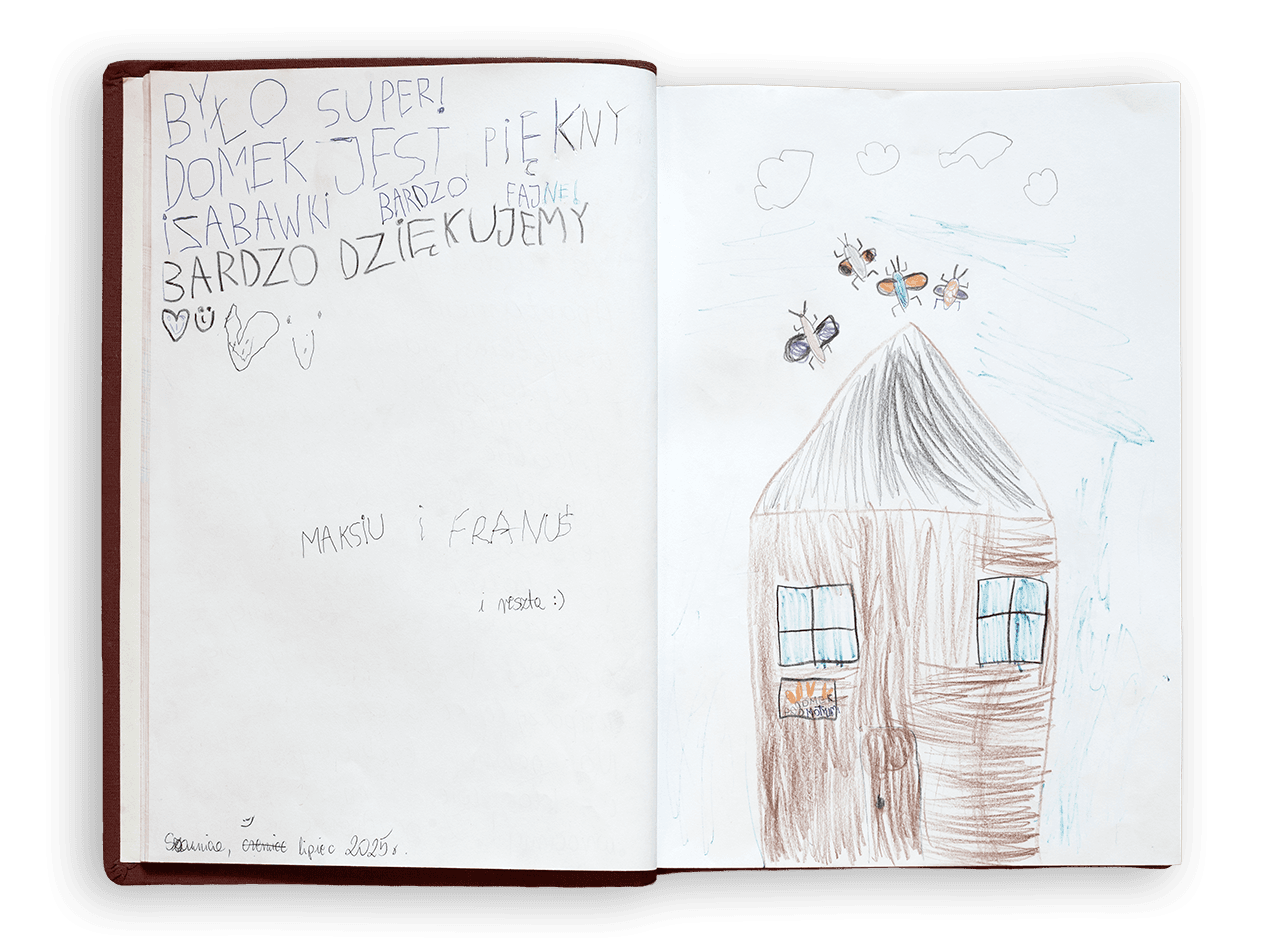 BYŁO SUPER!
DOMEK JEST PIĘKNY
i ZABAWKi BARDZO FAJNE!
BARDZO DZIĘKUJEMY
MAKSiU i FRANUŚ
i reszta :)
czerwiec lipiec 2025 r.
DOMEK
POD MOTYLEM